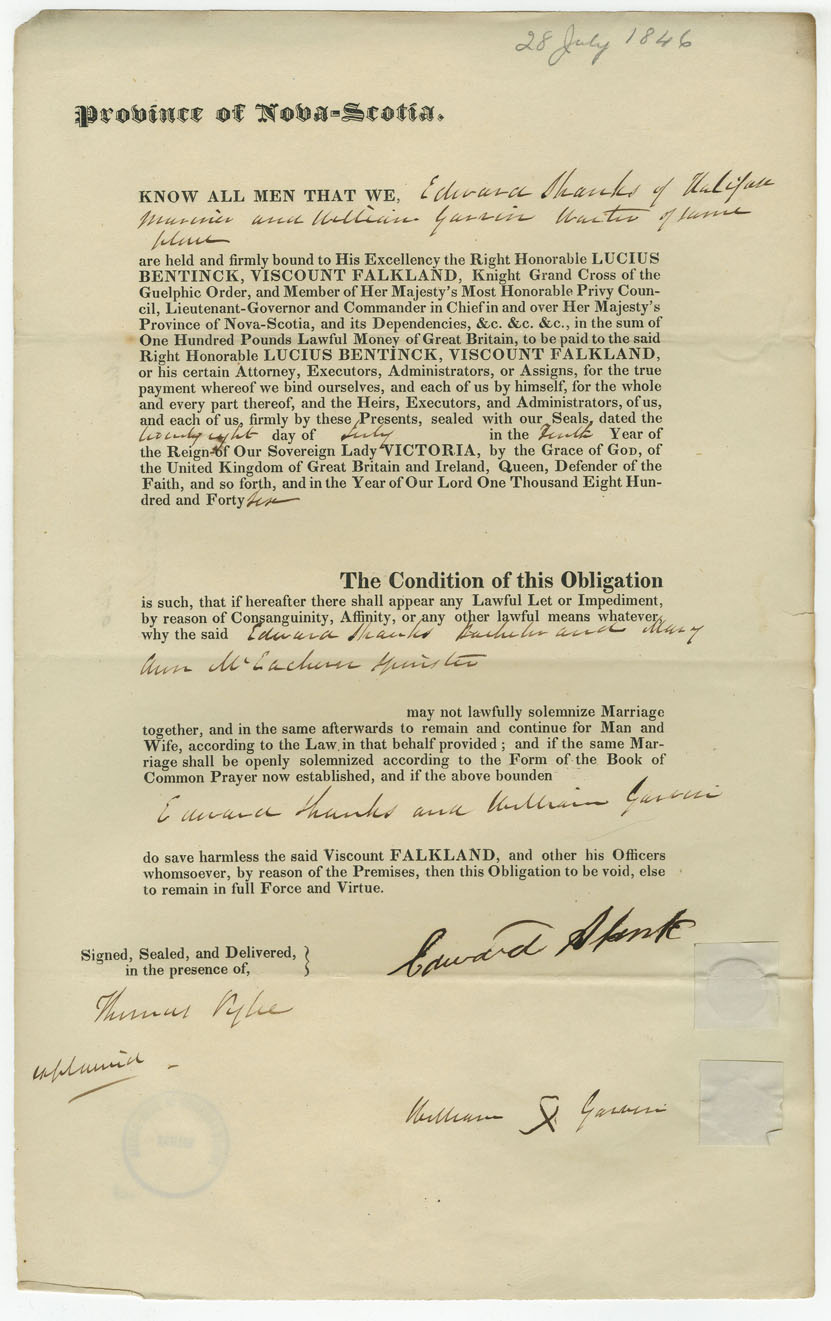 28 July 1846
Province of Nova-Scotia.
KNOW ALL MEN THAT WE, Edward Shanks of Halifax
Mariner and William Garvin Waiter of same
place
are held and firmly bound to His Excellency the Right Honorable LUCIUS
BENTINCK, VISCOUNT FALKLAND, Knight Grand Cross of the
Guelphic Order, and Member of Her Majesty's Most Honorable Privy Coun-
cil, Lieutenant-Governor and Commander in Chief in and over Her Majesty's
Province of Nova-Scotia, and its Dependencies, &c. &c. &c., in the sum of
One Hundred Pounds Lawful Money of Great Britain, to be paid to the said
Right Honorable LUCIUS BENTINCK, VISCOUNT FALKLAND,
or his certain Attorney, Executors, Administrators, or Assigns, for the true
payment whereof we bind ourselves, and each of us by himself, for the whole
and every part thereof, and the Heirs, Executors, and Administrators, of us,
and each of us, firmly by these Presents, sealed with our Seals, dated the
twenty eight day of July in the tenth Year of
the Reign of Our Sovereign Lady VICTORIA, by the Grace of GOD, of
the United Kingdom of Great Britain and Ireland, Queen, Defender of the
Faith, and so forth, and in the Year of Our Lord One Thousand Eight Hun-
dred and Forty six
The Condition of this Obligation
is such, that if hereafter there shall appear any Lawful Let or Impediment,
by reason of Consanguinity, Affinity, or any other lawful means whatever,
why the said Edward Shanks Bachelor and Mary
Ann McEachern Spinster
may not lawfully solemnize Marriage
together, and in the same afterwards to remain and continue for Man and
Wife, according to the Law in that behalf provided; and if the same Mar-
riage shall be openly solemnized according to the Form of the Book of
Common Prayer now established, and if the above bounden
Edward Shanks and William Garvin
do save harmless the said Viscount FALKLAND, and other his Officers
whomsoever, by reason of the Premises, then this Obligation to be void, else
to remain in full Force and Virtue.
Signed, Sealed, and Delivered,
in the presence of,
Edward Shank
Thomas
explained
William X Garvin